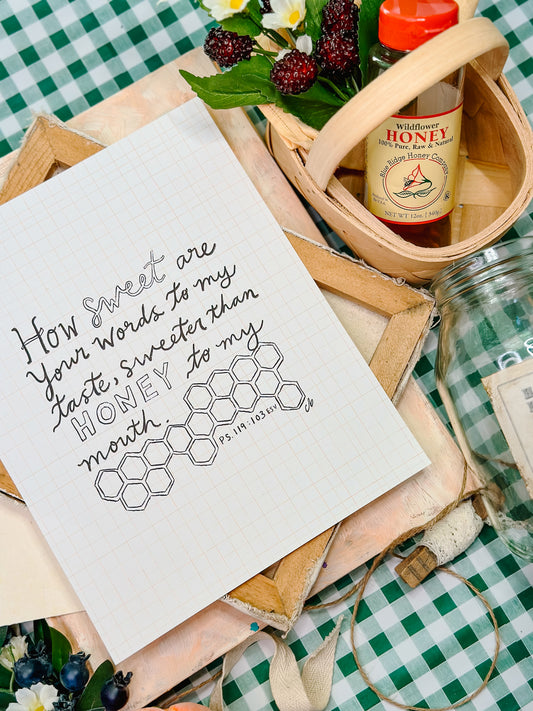 How sweet are
Your words to my
taste, sweeter than
HONEY to my
mouth.
PS. 119:103 ESV
Wildflower
HONEY
100% Pure, Raw & Natural
Blue Ridge Honey Company
NET WT 12oz. / 340g